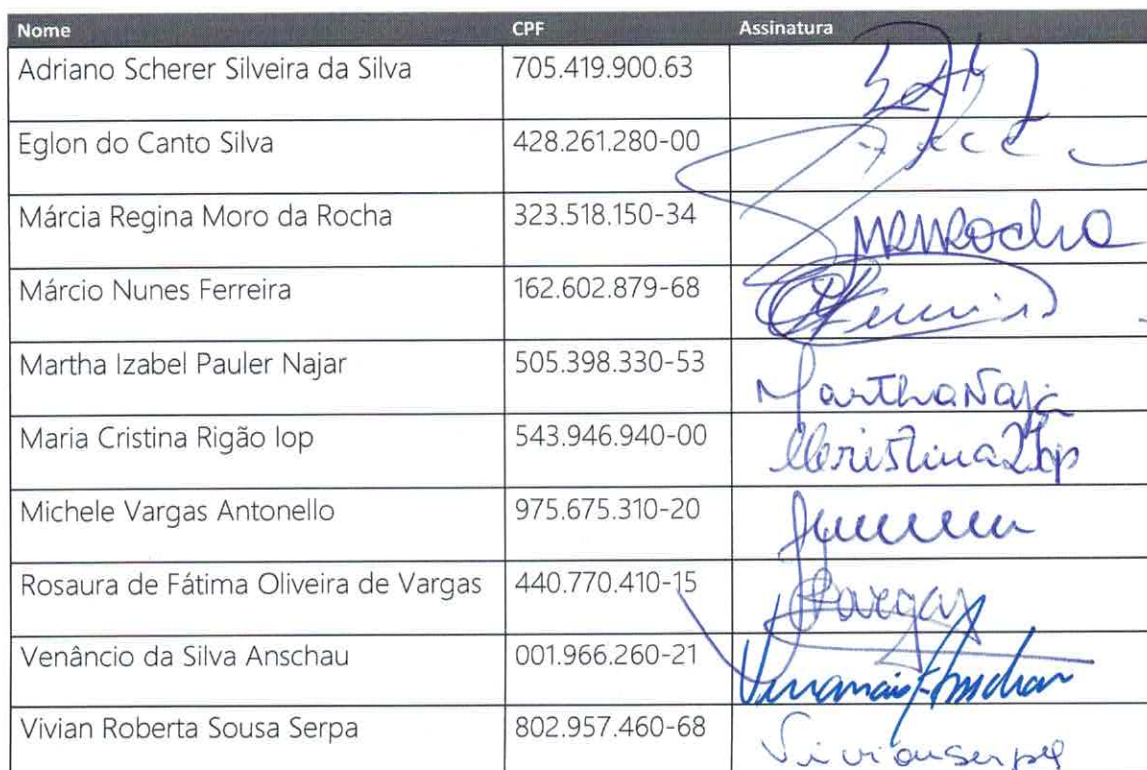 Nome CPF Assinatura
Adriano Scherer Silveira da Silva 705.419.900.63
Eglon do Canto Silva 428.261.280-00
Márcia Regina Moro da Rocha 323.518.150-34 MRMRocha
Márcio Nunes Ferreira 162.602.879-68
Martha Izabel Pauler Najar 505.398.330-53 Martha Najar
Maria Cristina Rigão Iop 543.946.940-00
Michele Vargas Antonello 975.675.310-20
Rosaura de Fátima Oliveira de Vargas 440.770.410-15 Vargas
Venâncio da Silva Anschau 001.966.260-21
Vivian Roberta Sousa Serpa 802.957.460-68 Vivian Serpa